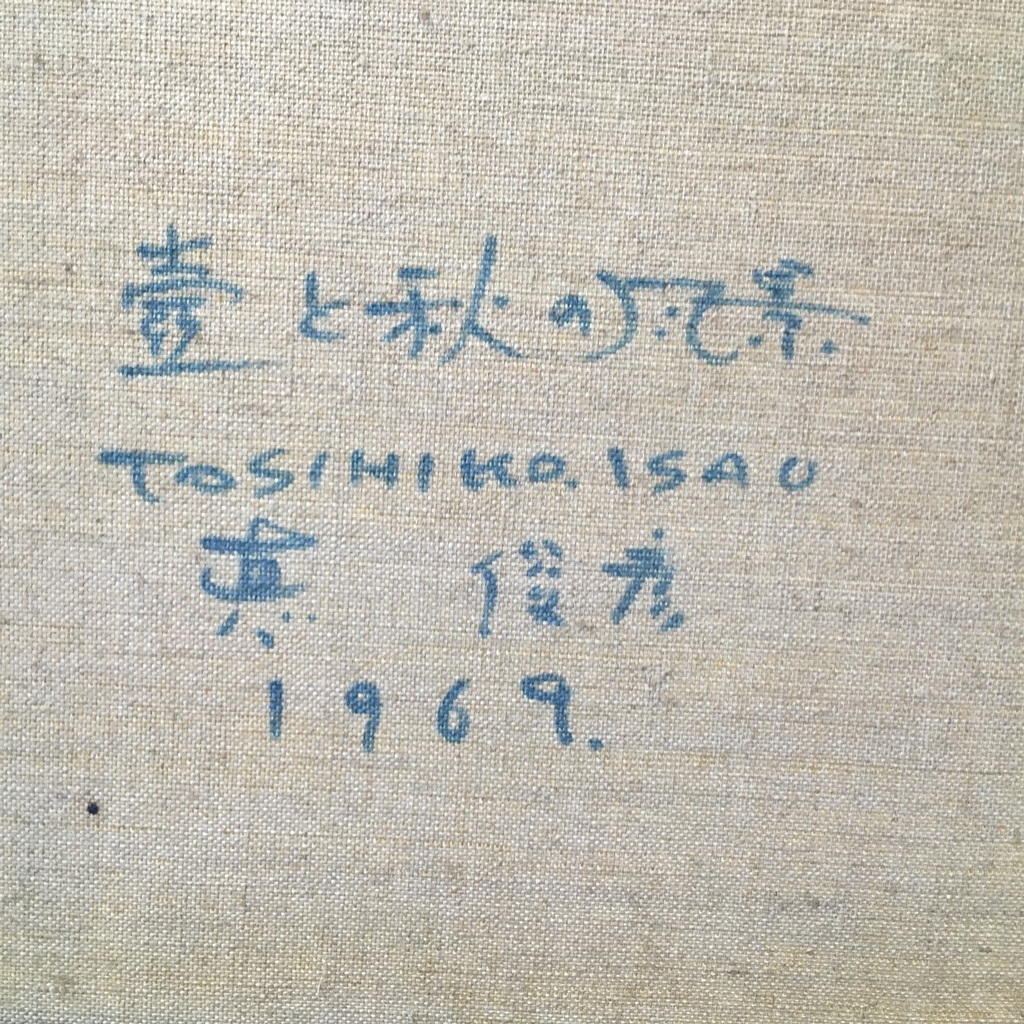 壺と秋の風景
TOSIHIKO.ISAO
真 俊彦
1969.